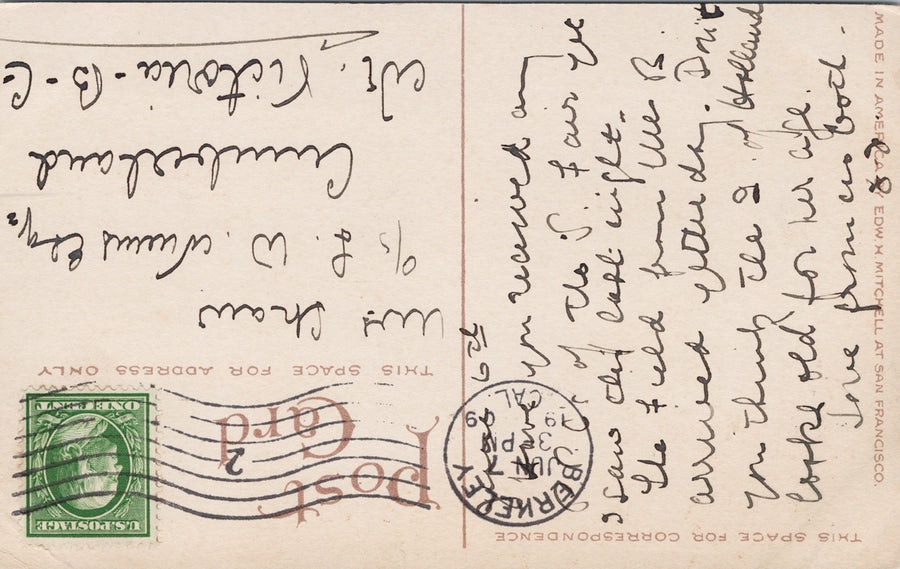 THIS SPACE FOR CORRESPONDENCE
6th
Have you received any
of the S fair yet
I saw last night.
The Field from Mrs B.
arrived yesterday. Don't
you think the Q of Holland
looks old for her age.
Love from us both.
MADE IN AMERICA BY EDW. H. MITCHELL AT SAN FRANCISCO.
Post
Card
2
BERKELEY
CAL
JUN 7
3 PM
1909
U.S. POSTAGE
ONE CENT
THIS SPACE FOR ADDRESS ONLY
Mrs Shaw
c/o W. Esqr
Cumberland
Nr. Victoria - B - C